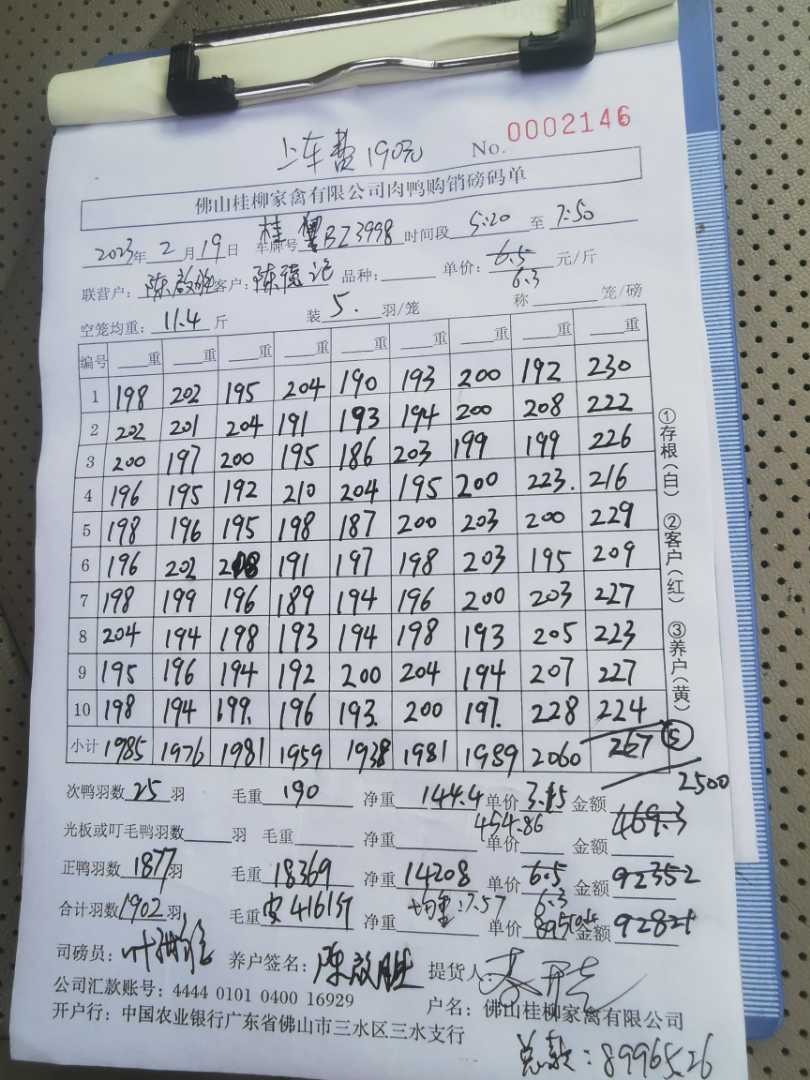 上车费190元 No. 0002146
佛山桂柳家禽有限公司肉鸭购销磅码单
2023年 2月 19日 车牌号 桂 BZ3998 时间段 5:20 至 7:50
联营户: 客户: 陈德记 品种: 单价: 6.5 元/斤
6.3
空笼均重: 11.4 斤 装 5. 羽/笼 称 笼/磅
编号 重 重 重 重 重 重 重 重 重
1 198 202 195 204 190 193 200 192 230
2 202 201 204 191 193 194 200 208 222
3 200 197 200 195 186 203 199 199 226
4 196 195 192 210 204 195 200 223. 216
5 198 196 195 198 187 200 203 200 229
6 196 202 191 197 198 203 195 209
7 198 199 196 189 194 196 200 203 227
8 204 194 198 193 194 198 193 205 223
9 195 196 194 192 200 204 194 207 227
10 198 194 199. 196 193. 200 197. 228 224
小计 1985 1976 1981 1959 1938 1981 1989 2060 267 ⑤
2500
①存根(白) ②客户(红) ③养户(黄)
次鸭羽数 25 羽 毛重 190 净重 144.4 单价 3.15 金额 469.3
454.86
光板或叮毛鸭羽数 羽 毛重 净重 单价 金额
正鸭羽数 1877 羽 毛重 18369 净重 14208 单价 6.5 金额 92352
6.3
合计羽数 1902 羽 毛重 净重 均重:7.57 单价 金额
司磅员: 养户签名: 提货人:
公司汇款账号: 4444 0101 0400 16929 户名: 佛山桂柳家禽有限公司
开户行: 中国农业银行广东省佛山市三水区三水支行
总款: 89965.26